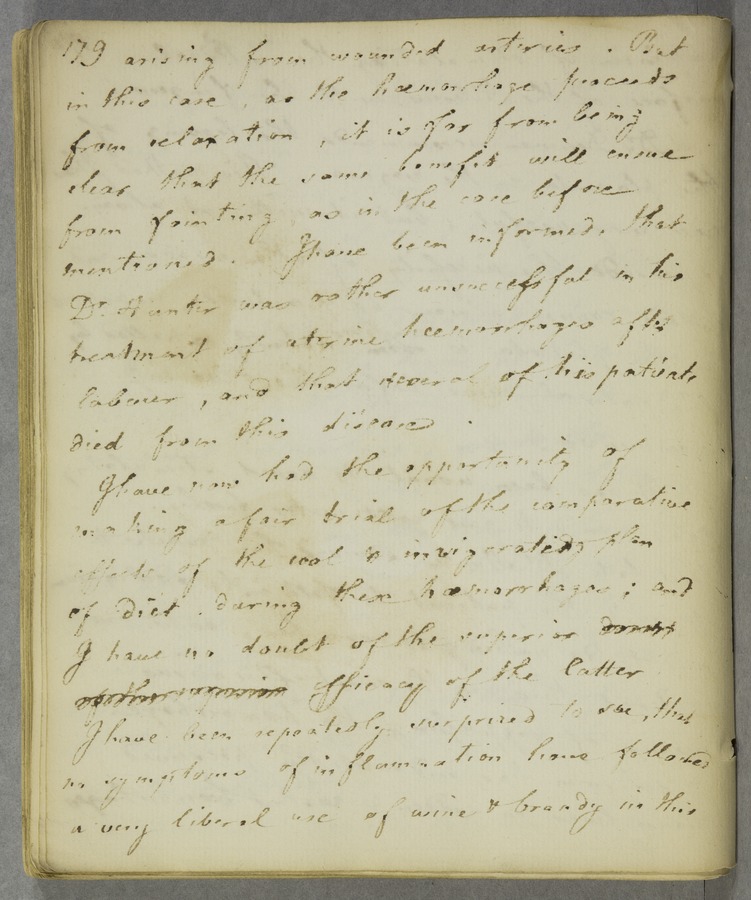 179 arising from wounded arteries. But
in this case, as the hæmorrhage proceeds
from relaxation, it is far from being
clear that the same benefit will ensue
from fainting as in the case before
mentioned. I have been informed, that
Dr. Hunter was rather unsuccessful in his
treatment of uterine hæmorrhages after
labour, and that several of his patients
died from this disease.
I have now had the opportunity of
making a fair trial of the comparative
effects of the cool & invigorating plan
of diet during these hæmorrhages; and
I have no doubt of the superior
efficacy of the latter
I have been repeatedly surprized to see, that
no symptoms of inflammation have followed
a very liberal use of wine & brandy in this